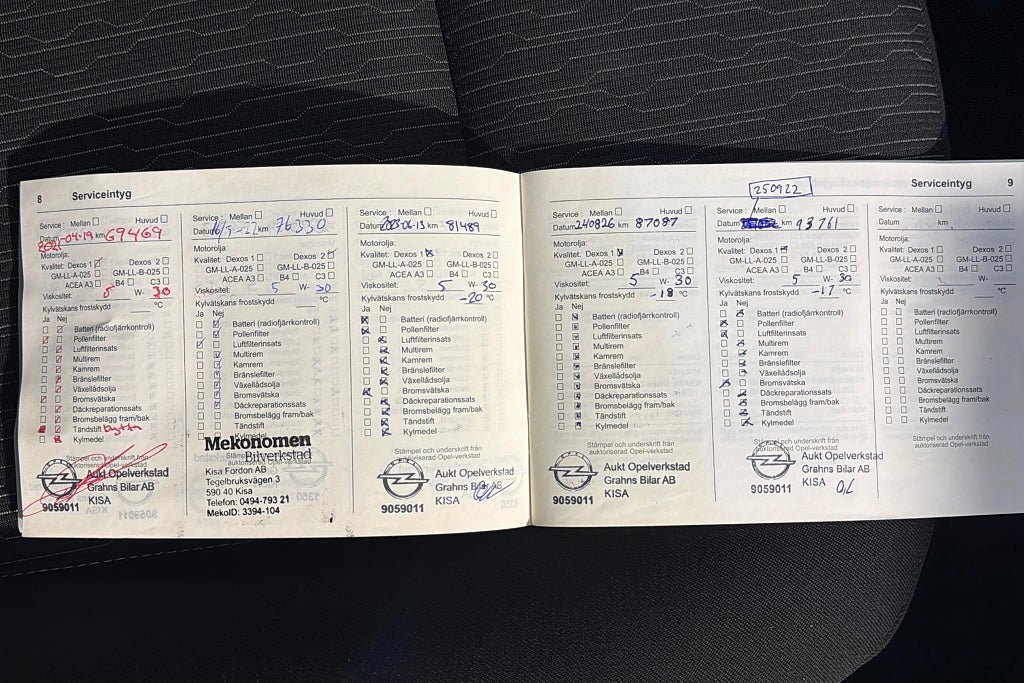 8 Serviceintyg
Service : Mellan Huvud
Datum 2021-04-19 km 69469
Motorolja:
Kvalitet: Dexos 1 Dexos 2
GM-LL-A-025 GM-LL-B-025
ACEA A3 B4 C3
Viskositet: 5 W- 30
Kylvätskans frostskydd °C
Ja Nej
Batteri (radiofjärrkontroll)
Pollenfilter
Luftfilterinsats
Multirem
Kamrem
Bränslefilter
Växellådsolja
Bromsvätska
Däckreparationssats
Bromsbelägg fram/bak
Tändstift bytta
Kylmedel
Stämpel och underskrift från
auktoriserad Opel-verkstad
Aukt Opelverkstad
Grahns Bilar AB
KISA
9059011
Service : Mellan Huvud
Datum 16/5-22 km 76330
Motorolja:
Kvalitet: Dexos 1 Dexos 2
GM-LL-A-025 GM-LL-B-025
ACEA A3 B4 C3
Viskositet: 5 W- 30
Kylvätskans frostskydd °C
Ja Nej
Batteri (radiofjärrkontroll)
Pollenfilter
Luftfilterinsats
Multirem
Kamrem
Bränslefilter
Växellådsolja
Bromsvätska
Däckreparationssats
Bromsbelägg fram/bak
Tändstift
Kylmedel
Mekonomen
Bilverkstad
Kisa Fordon AB
Tegelbruksvägen 3
590 40 Kisa
Telefon: 0494-793 21
MekoID: 3394-104
Service : Mellan Huvud
Datum km 81489
Motorolja:
Kvalitet: Dexos 1 Dexos 2
GM-LL-A-025 GM-LL-B-025
ACEA A3 B4 C3
Viskositet: 5 W- 30
Kylvätskans frostskydd -20 °C
Ja Nej
Batteri (radiofjärrkontroll)
Pollenfilter
Luftfilterinsats
Multirem
Kamrem
Bränslefilter
Växellådsolja
Bromsvätska
Däckreparationssats
Bromsbelägg fram/bak
Tändstift
Kylmedel
Stämpel och underskrift från
auktoriserad Opel-verkstad
Aukt Opelverkstad
Grahns Bilar AB
KISA
9059011
Serviceintyg 9
Service : Mellan Huvud
Datum 240826 km 87087
Motorolja:
Kvalitet: Dexos 1 Dexos 2
GM-LL-A-025 GM-LL-B-025
ACEA A3 B4 C3
Viskositet: 5 W- 30
Kylvätskans frostskydd -18 °C
Ja Nej
Batteri (radiofjärrkontroll)
Pollenfilter
Luftfilterinsats
Multirem
Kamrem
Bränslefilter
Växellådsolja
Bromsvätska
Däckreparationssats
Bromsbelägg fram/bak
Tändstift
Kylmedel
Stämpel och underskrift från
auktoriserad Opel-verkstad
Aukt Opelverkstad
Grahns Bilar AB
KISA
9059011
250922
Service : Mellan Huvud
Datum km 93761
Motorolja:
Kvalitet: Dexos 1 Dexos 2
GM-LL-A-025 GM-LL-B-025
ACEA A3 B4 C3
Viskositet: 5 W- 30
Kylvätskans frostskydd -17 °C
Ja Nej
Batteri (radiofjärrkontroll)
Pollenfilter
Luftfilterinsats
Multirem
Kamrem
Bränslefilter
Växellådsolja
Bromsvätska
Däckreparationssats
Bromsbelägg fram/bak
Tändstift
Kylmedel
Stämpel och underskrift från
auktoriserad Opel-verkstad
Aukt Opelverkstad
Grahns Bilar AB
KISA
9059011
Service : Mellan Huvud
Datum km
Motorolja:
Kvalitet: Dexos 1 Dexos 2
GM-LL-A-025 GM-LL-B-025
ACEA A3 B4 C3
Viskositet: W-
Kylvätskans frostskydd °C
Ja Nej
Batteri (radiofjärrkontroll)
Pollenfilter
Luftfilterinsats
Multirem
Kamrem
Bränslefilter
Växellådsolja
Bromsvätska
Däckreparationssats
Bromsbelägg fram/bak
Tändstift
Kylmedel
Stämpel och underskrift från
auktoriserad Opel-verkstad